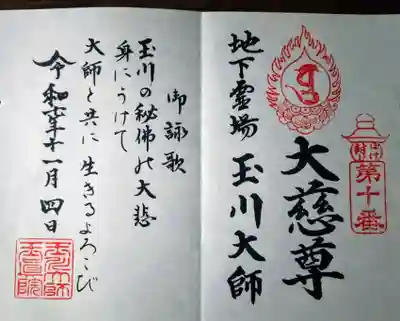 第十番
大慈尊
地下霊場 玉川大師
御詠歌
玉川の秘佛の大悲
身にうけて
大師と共に 生きるよろこび
令和 年十一月四日